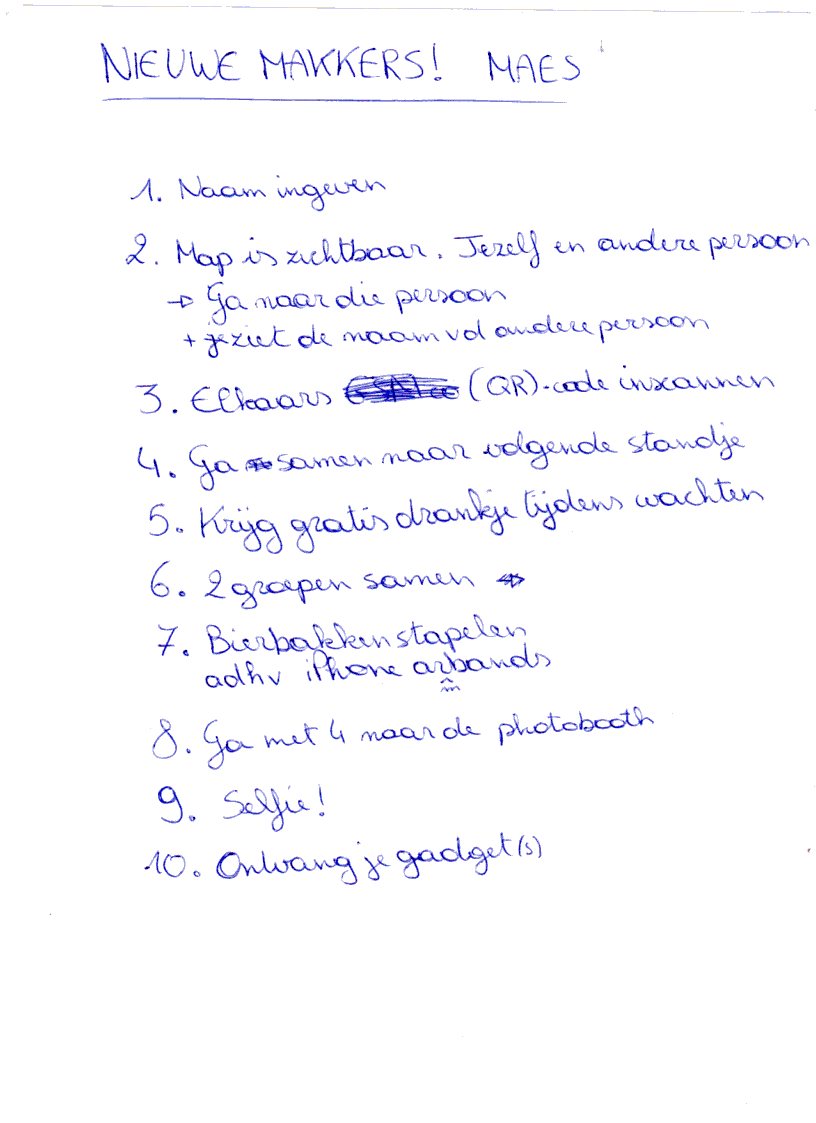 NIEUWE MAKKERS! MAES
1. Naam ingeven
2. Map is zichtbaar. Jezelf en andere persoon
→ Ga naar die persoon
+ je ziet de naam vd andere persoon
3. Elkaars (QR)-code inscannen
4. Ga samen naar volgende standje
5. Krijg gratis drankje tijdens wachten
6. 2 groepen samen →
7. Bierbakken stapelen
adhv iPhone armbands
8. Ga met 4 naar de photobooth
9. Selfie!
10. Ontvang je gadget(s)